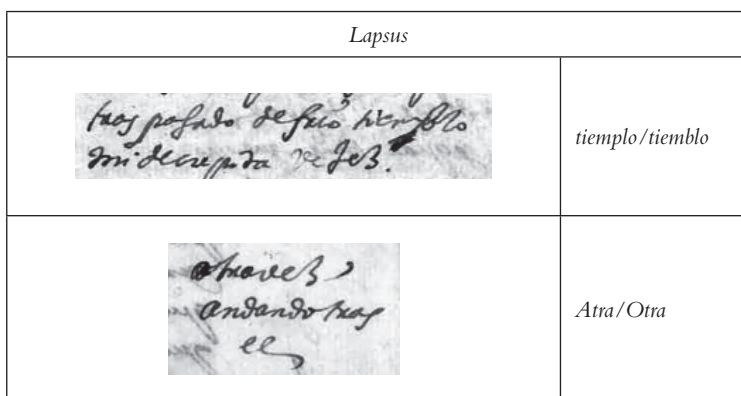 Lapsus
traspasado de frio tiemblo
mi decrepita vejez.
tiemplo/tiemblo
otra vez
andando tras
el
Atra/Otra